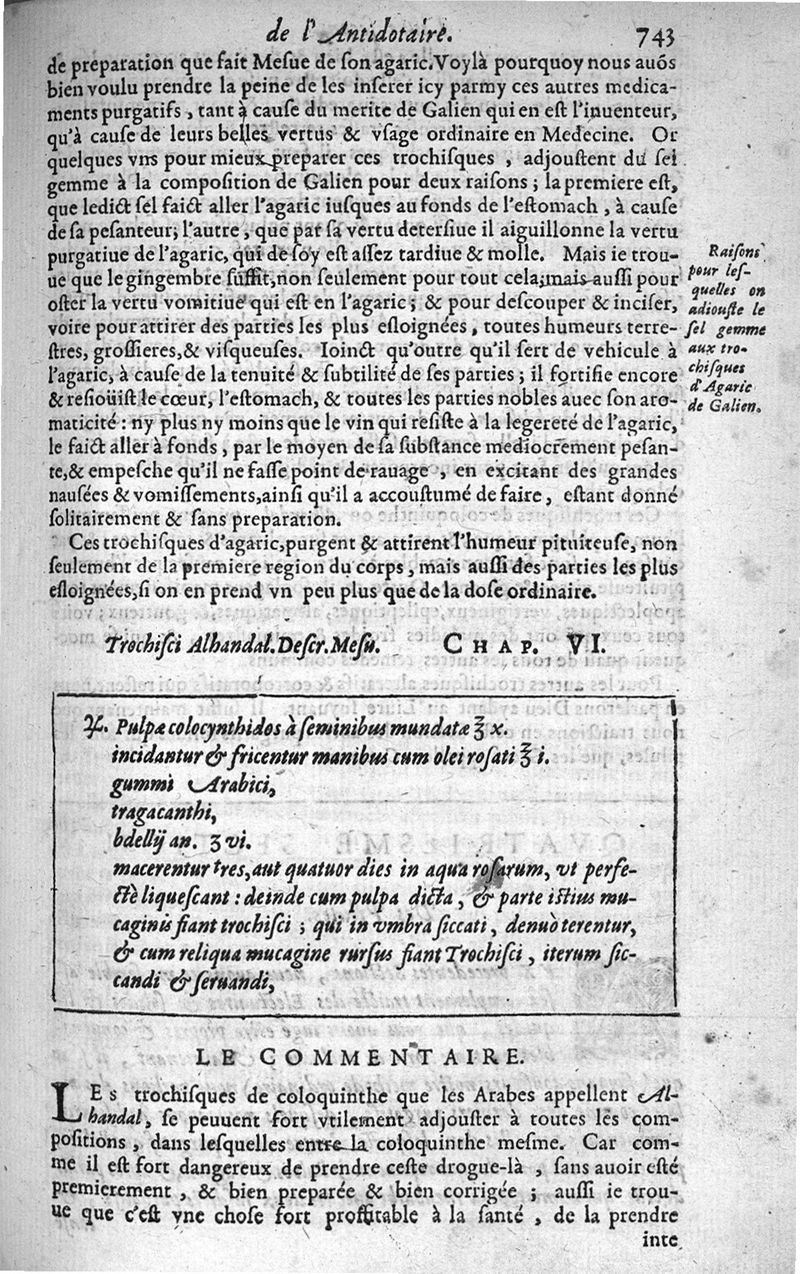 de l'Antidotaire. 743
de preparation que fait Mesue de son agaric. Voylà pourquoy nous auõs
bien voulu prendre la peine de les inserer icy parmy ces autres medica-
ments purgatifs, tant à cause du merite de Galien qui en est l'inuenteur,
qu'à cause de leurs belles vertus & vsage ordinaire en Medecine. Or
quelques vns pour mieux preparer ces trochisques, adjoustent du sel
gemme à la composition de Galien pour deux raisons; la premiere est,
que ledict sel faict aller l'agaric iusques au fonds de l'estomach, à cause
de sa pesanteur; l'autre, que par sa vertu detersiue il aiguillonne la vertu
purgatiue de l'agaric, qui de soy est assez tardiue & molle. Mais ie trou-
ue que le gingembre suffit, non seulement pour tout cela, mais aussi pour
oster la vertu vomitiue qui est en l'agaric; & pour descouper & inciser,
voire pour attirer des parties les plus esloignées, toutes humeurs terre-
stres, grossieres, & visqueuses. Ioinct qu'outre qu'il sert de vehicule à
l'agaric, à cause de la tenuité & subtilité de ses parties; il fortifie encore
& resioüist le cœur, l'estomach, & toutes les parties nobles auec son aro-
maticité: ny plus ny moins que le vin qui resiste à la legereté de l'agaric,
le faict aller à fonds, par le moyen de sa substance mediocrement pesan-
te, & empesche qu'il ne fasse point de rauage, en excitant des grandes
nausées & vomissements, ainsi qu'il a accoustumé de faire, estant donné
solitairement & sans preparation.
Ces trochisques d'agaric, purgent & attirent l'humeur pituiteuse, non
seulement de la premiere region du corps, mais aussi des parties les plus
esloignées, si on en prend vn peu plus que de la dose ordinaire.
Raisons
pour les-
quelles on
adiouste le
sel gemme
aux tro-
chisques
d'Agaric
de Galien.
Trochisci Alhandal. Descr. Mesu. CHAP. VI.
℞. Pulpæ colocynthidos à seminibus mundatæ ℥ x.
incidantur & fricentur manibus cum olei rosati ℥ i.
gummi Arabici,
tragacanthi,
bdellij an. ʒ vi.
macerentur tres, aut quatuor dies in aqua rosarum, vt perfe-
ctè liquescant: deinde cum pulpa dicta, & parte istius mu-
caginis fiant trochisci; qui in vmbra siccati, denuò terentur,
& cum reliqua mucagine rursus fiant Trochisci, iterum sic-
candi & seruandi,
LE COMMENTAIRE.
LEs trochisques de coloquinthe que les Arabes appellent Al-
handal, se peuuent fort vtilement adjouster à toutes les com-
positions, dans lesquelles entre la coloquinthe mesme. Car com-
me il est fort dangereux de prendre ceste drogue-là, sans auoir esté
premierement, & bien preparée & bien corrigée; aussi ie trou-
ue que c'est vne chose fort proffitable à la santé, de la prendre
inte